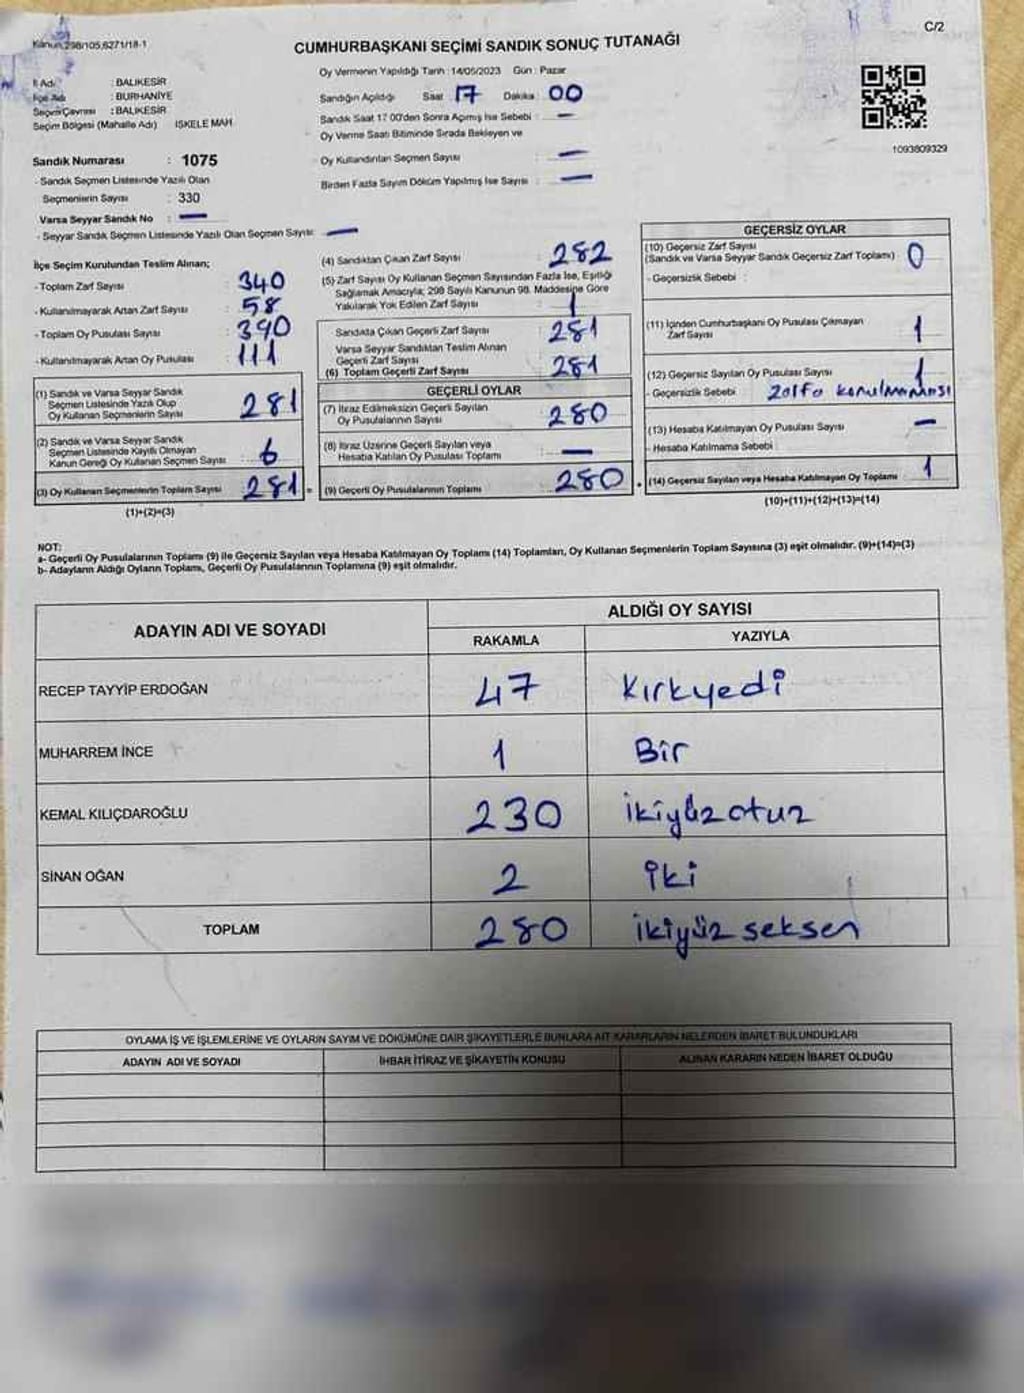 Kanun 298/105,6271/18-1
C/2
CUMHURBAŞKANI SEÇİMİ SANDIK SONUÇ TUTANAĞI
İl Adı : BALIKESİR
İlçe Adı : BURHANİYE
Seçim Çevresi : BALIKESİR
Seçim Bölgesi (Mahalle Adı) İSKELE MAH.
Sandık Numarası : 1075
- Sandık Seçmen Listesinde Yazılı Olan
Seçmenlerin Sayısı : 330
Varsa Seyyar Sandık No : —
- Seyyar Sandık Seçmen Listesinde Yazılı Olan Seçmen Sayısı: —
Oy Vermenin Yapıldığı Tarih : 14/05/2023 Gün : Pazar
Sandığın Açıldığı Saat : 17 Dakika : 00
Sandık Saat 17:00'den Sonra Açmış İse Sebebi : —
Oy Verme Saati Bitiminde Sırada Bekleyen ve
Oy Kullandırılan Seçmen Sayısı : —
Birden Fazla Sayım Döküm Yapılmış İse Sayısı : —
1093809329
İlçe Seçim Kurulundan Teslim Alınan;
- Toplam Zarf Sayısı : 340
- Kullanılmayarak Artan Zarf Sayısı : 58
- Toplam Oy Pusulası Sayısı : 390
- Kullanılmayarak Artan Oy Pusulası : 111
(1) Sandık ve Varsa Seyyar Sandık
Seçmen Listesinde Yazılı Olup
Oy Kullanan Seçmenlerin Sayısı 281
(2) Sandık ve Varsa Seyyar Sandık
Seçmen Listesinde Kayıtlı Olmayan
Kanun Gereği Oy Kullanan Seçmen Sayısı 6
(3) Oy Kullanan Seçmenlerin Toplam Sayısı 281
(1)+(2)=(3)
(4) Sandıktan Çıkan Zarf Sayısı : 282
(5) Zarf Sayısı Oy Kullanan Seçmen Sayısından Fazla İse, Eşitliği
Sağlamak Amacıyla; 298 Sayılı Kanunun 98. Maddesine Göre
Yakılarak Yok Edilen Zarf Sayısı : 1
Sandıkta Çıkan Geçerli Zarf Sayısı : 281
Varsa Seyyar Sandıktan Teslim Alınan
Geçerli Zarf Sayısı
(6) Toplam Geçerli Zarf Sayısı : 281
GEÇERLİ OYLAR
(7) İtiraz Edilmeksizin Geçerli Sayılan
Oy Pusulalarının Sayısı : 280
(8) İtiraz Üzerine Geçerli Sayılan veya
Hesaba Katılan Oy Pusulası Toplamı : —
(9) Geçerli Oy Pusulalarının Toplamı : 280
GEÇERSİZ OYLAR
(10) Geçersiz Zarf Sayısı
(Sandık ve Varsa Seyyar Sandık Geçersiz Zarf Toplamı) : 0
- Geçersizlik Sebebi :
(11) İçinden Cumhurbaşkanı Oy Pusulası Çıkmayan
Zarf Sayısı : 1
(12) Geçersiz Sayılan Oy Pusulası Sayısı : 1
- Geçersizlik Sebebi : Zarfa konulmaması
(13) Hesaba Katılmayan Oy Pusulası Sayısı : —
- Hesaba Katılmama Sebebi :
(14) Geçersiz Sayılan veya Hesaba Katılmayan Oy Toplamı : 1
(10)+(11)+(12)+(13)=(14)
NOT:
a- Geçerli Oy Pusulalarının Toplamı (9) ile Geçersiz Sayılan veya Hesaba Katılmayan Oy Toplamı (14) Toplamları, Oy Kullanan Seçmenlerin Toplam Sayısına (3) eşit olmalıdır. (9)+(14)=(3)
b- Adayların Aldığı Oyların Toplamı, Geçerli Oy Pusulalarının Toplamına (9) eşit olmalıdır.
ADAYIN ADI VE SOYADI
ALDIĞI OY SAYISI
RAKAMLA YAZIYLA
RECEP TAYYİP ERDOĞAN 47 Kırkyedi
MUHARREM İNCE 1 Bir
KEMAL KILIÇDAROĞLU 230 ikiyüzotuz
SİNAN OĞAN 2 iki
TOPLAM 280 ikiyüz seksen
OYLAMA İŞ VE İŞLEMLERİNE VE OYLARIN SAYIM VE DÖKÜMÜNE DAİR ŞİKAYETLERLE BUNLARA AİT KARARLARIN NELERDEN İBARET BULUNDUKLARI
ADAYIN ADI VE SOYADI İHBAR İTİRAZ VE ŞİKAYETİN KONUSU ALINAN KARARIN NEDEN İBARET OLDUĞU